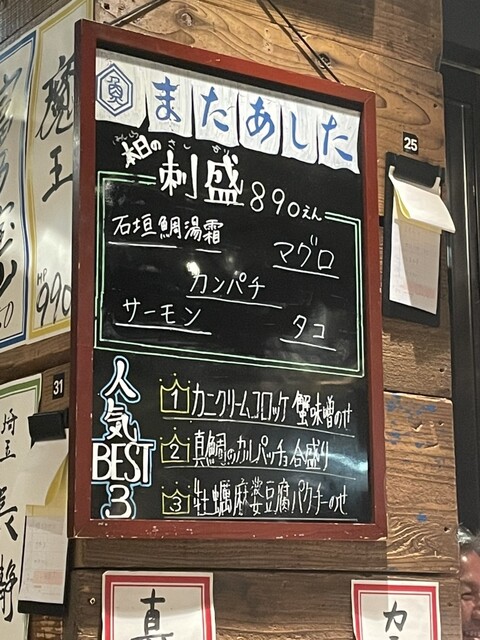 またあした
本日の
刺盛 890えん
さしもり
石垣鯛湯霜
マグロ
カンパチ
サーモン
タコ
人気BEST3
1 カニクリームコロッケ 蟹味噌のせ
2 真鯛のカルパッチョ合盛り
3 牡蠣麻婆豆腐パクチーのせ
25
31
魔王
990
埼玉
真
カ